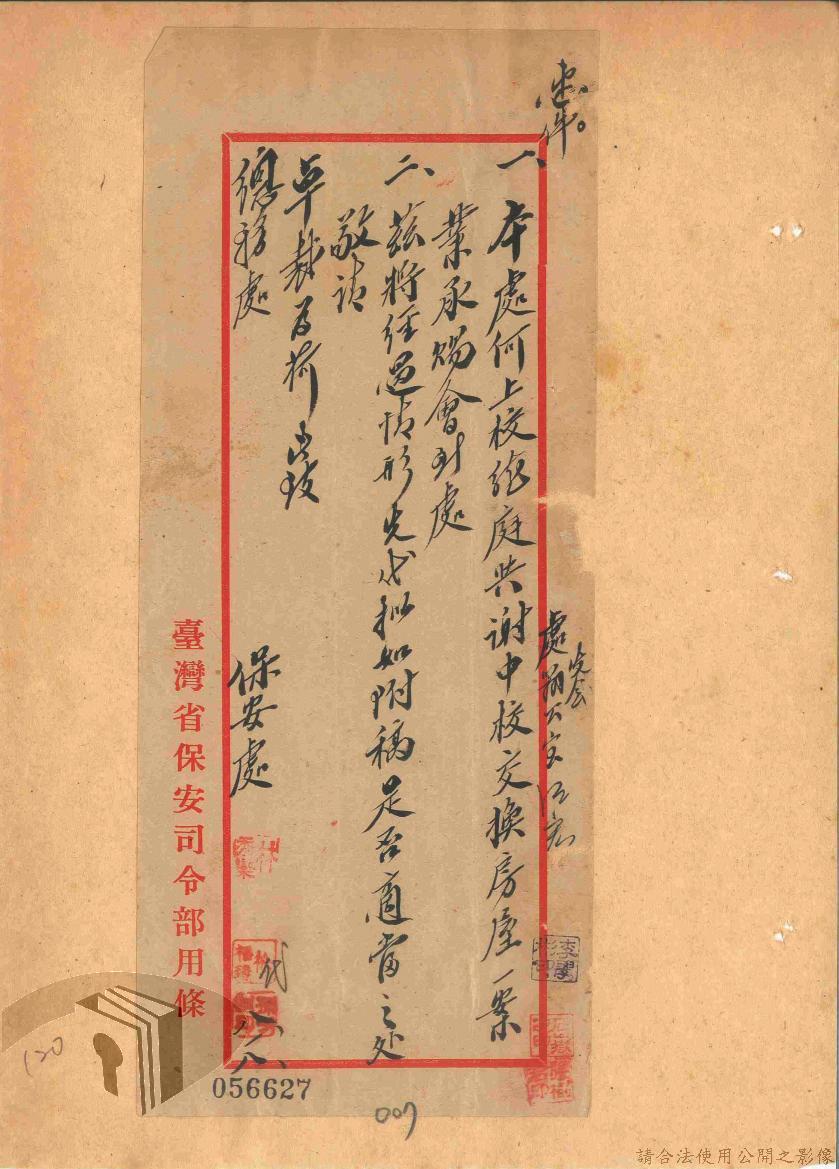 速件。
一、本處何上校緯庭與謝中校交換房屋一案
業承賜會計處
二、茲將經過情形先代擬如附稿是否適當之处
敬請
卓裁為荷 此致
總務處
保安處
代
八、八
臺灣省保安司令部用條
056627
007
120
請合法使用公開之影像